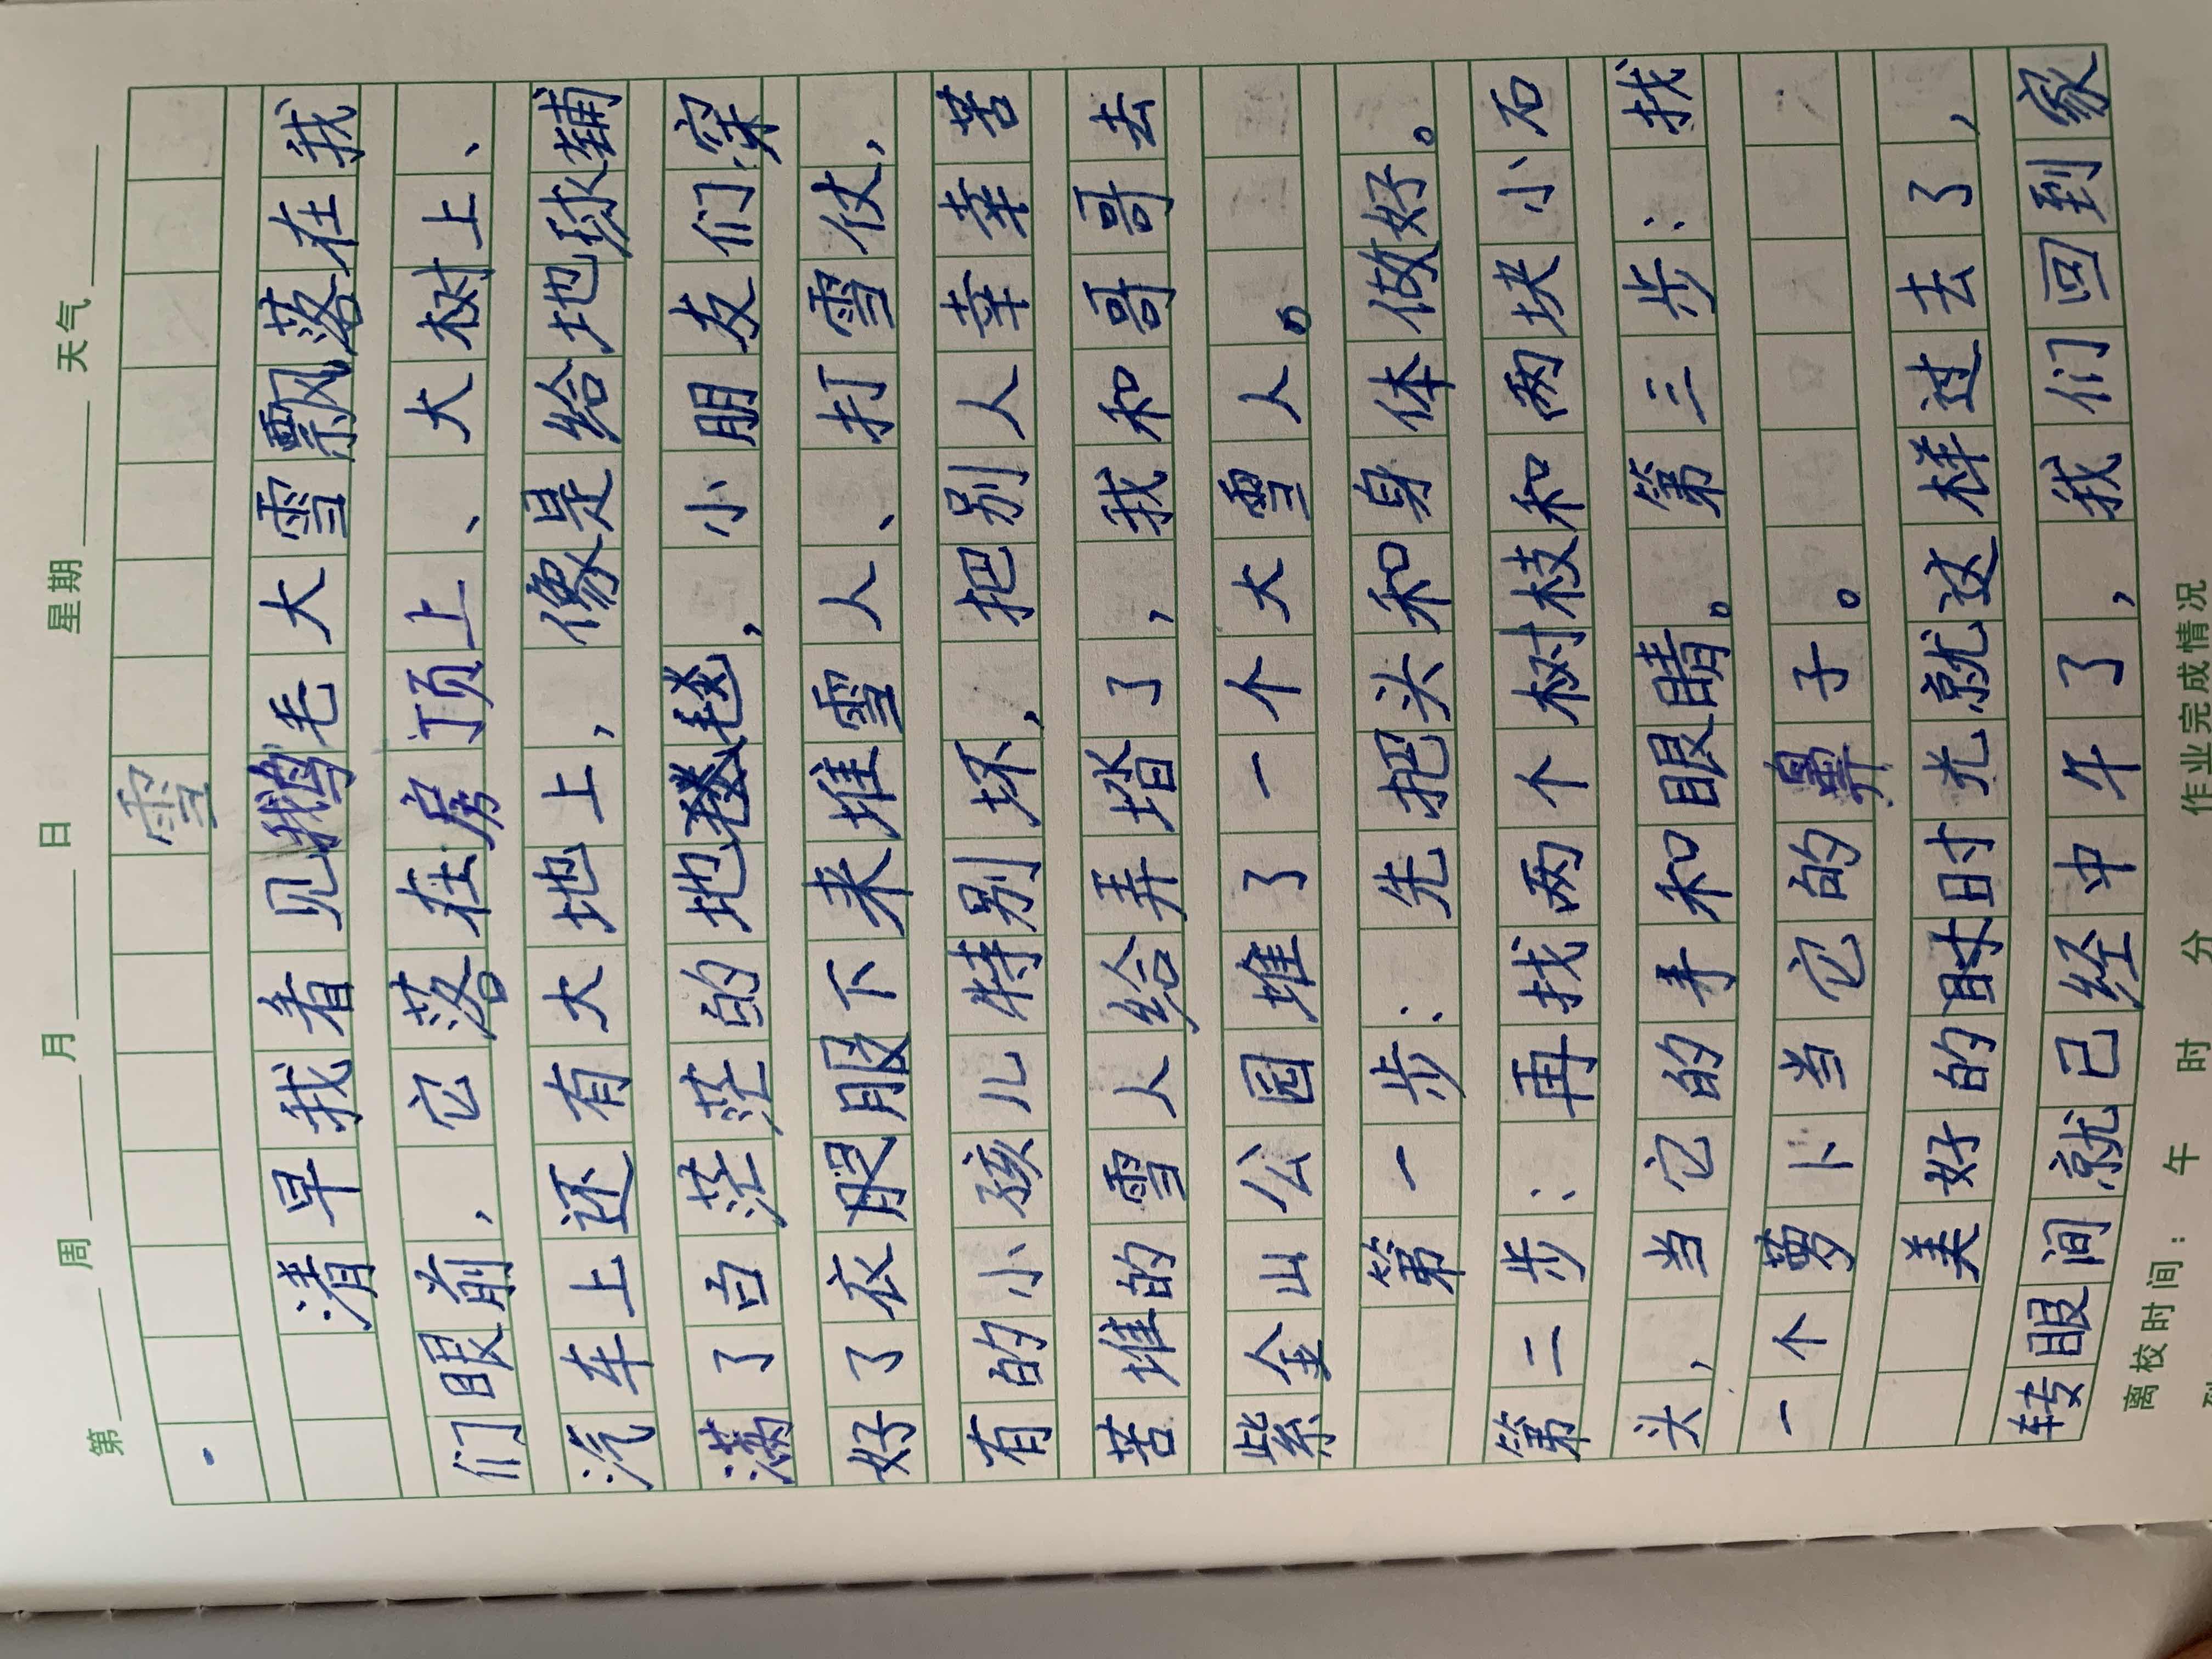 第 周 月 日 星期 天气
雪
清早我看见鹅毛大雪飘落在我
们眼前，它落在房顶上、大树上、
汽车上还有大地上，像是给地球铺
满了白茫茫的地毯，小朋友们穿
好了衣服下来堆雪人、打雪仗，
有的小孩儿特别坏，把别人幸幸苦
苦堆的雪人给弄踏了，我和哥哥去
紫金山公园堆了一个大雪人。
第一步：先把头和身体做好。
第二步：再找两个树枝和两块小石
头，当它的手和眼睛。第三步：找
一个萝卜当它的鼻子。
美好的时光就这样过去了，
转眼间就已经中午了，我们回到家
离校时间： 午 时 分 作业完成情况